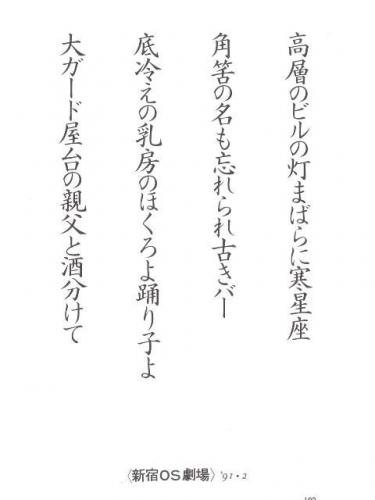 高層のビルの灯まばらに寒星座
角筈の名も忘れられ古きバー
底冷えの乳房のほくろよ踊り子よ
大ガード屋台の親父と酒分けて
〈新宿OS劇場〉'91・2